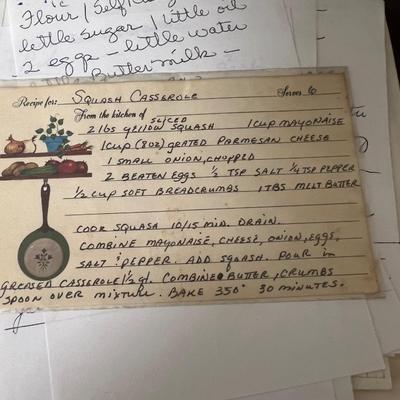 Flour / Self
little sugar / little oil
2 eggs - little water
Buttermilk -
Recipe for: SQUASH CASSEROLE Serves 6
From the kitchen of
2 lbs yellow SLICED SQUASH 1 CUP MAYONAISE
1 CUP (3 oz) GRATED PARMESAN CHEESE
1 SMALL ONION, CHOPPED
2 BEATEN EGGS ½ TSP SALT ¼ TSP PEPPER
½ CUP SOFT BREADCRUMBS 1 TBS MELT BUTTER
COOK SQUASH 10/15 MIN. DRAIN.
COMBINE MAYONAISE, CHEESE, ONION, EGGS,
SALT & PEPPER. ADD SQUASH. POUR IN
GREASED CASSEROLE 1½ qt. COMBINE BUTTER, CRUMBS
SPOON OVER MIXTURE. BAKE 350° 30 MINUTES.